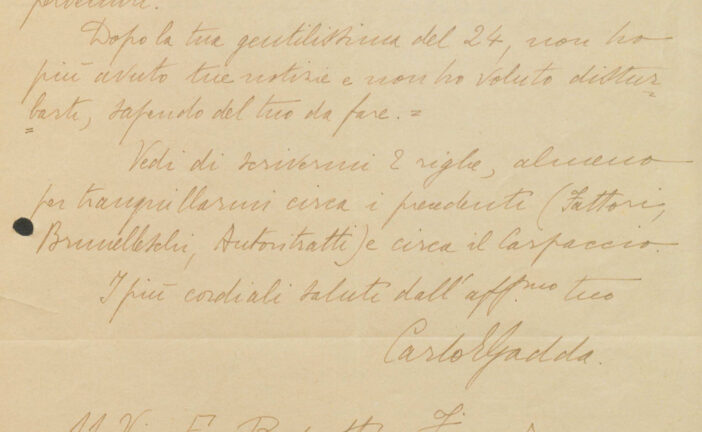 pervenuti.
Dopo la tua gentilissima del 24, non ho
più avuto tue notizie e non ho voluto distur=
=barti, sapendo del tuo da fare.=
Vedi di scrivermi 2 righe, almeno
per tranquillarmi circa i precedenti (Fattori,
Brunelleschi, Autoritratti) e circa il Carpaccio.
I più cordiali saluti dall'aff.mo tuo
Carlo E Gadda.